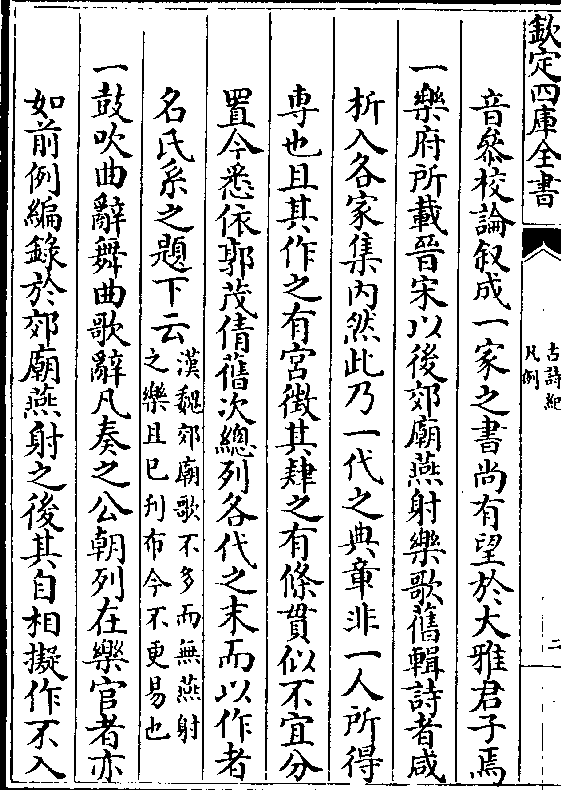 欽定四庫全書
古詩紀
凡例
二
音叅校論叙成一家之書尚有望於大雅君子焉
一樂府所載晉宋以後郊廟燕射樂歌舊輯詩者咸
析入各家集内然此乃一代之典章非一人所得
専也且其作之有宫徴其肄之有條貫似不宜分
置今悉依郭茂倩舊次總列各代之末而以作者
名氏系之題下云漢魏郊廟歌不多而無燕射
之樂且已刋布今不更易也
一鼓吹曲辭舞曲歌辭凡奏之公朝列在樂官者亦
如前例編錄於郊廟燕射之後其自相擬作不入